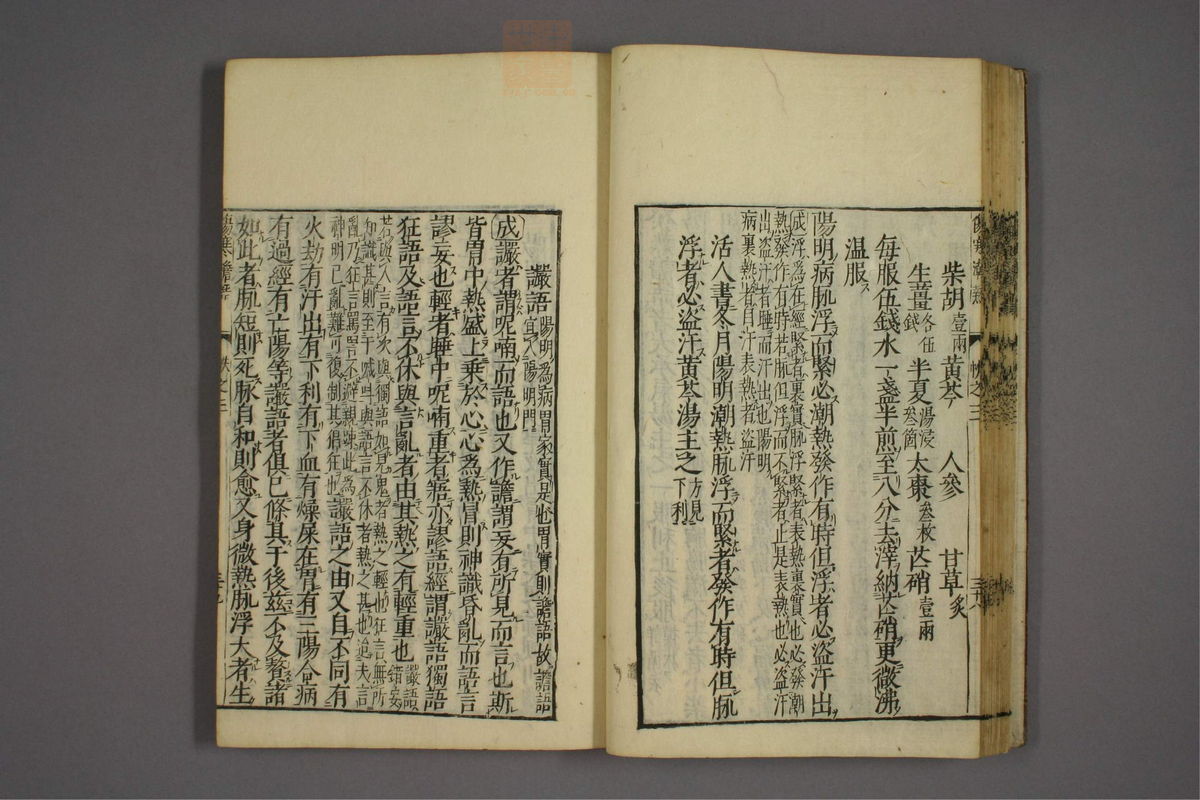 柴胡壹兩黃芩 人參 甘草炙
生薑各伍錢 半夏湯浸叁箇太棗叁枚芒硝壹兩
每服伍錢水一盞半煎至八分去滓納芒硝更微沸
温服
陽明病脉浮而緊必潮熱發作有時但浮者必盜汗出
成浮爲在經緊者裏實脉浮緊者表熱裏實也必發潮
熱發作有時若脉但浮而不緊者止是表熱也必盜汗
出盜汗者睡而汗出也陽明
病裏熱者自汗表熱者盜汗
活人書冬月陽明潮熱脉浮而緊者發作有時但脉
浮者必盜汗黃芩湯主之方見下利
讝語陽明爲病胃家實是也胃實則譫語故譫語
宜入陽明門
成讝者謂呢喃而語也又作譫謂妄有所見而言也斯
皆胃中熱盛上乗於心心爲熱冒則神識昏亂而語言
謬妄也輕者睡中呢喃重者寤亦謬語經謂讝語獨語
狂語及語言不休與言亂者由其熱之有輕重也讝語錯妄
若與人言有次與獨語如見鬼者熱之輕也狂言無所
知識甚則至于喊呌與語言不休者熱之甚也迨夫言
亂乃狂言罵詈不避親踈此爲
神明已亂難可復制其猖狂也讝語之由又自不同有
火劫有汗出有下利有下血有燥屎在胃有三陽合病
有過經有亡陽等讝語者俱已條其于後兹不及贅諸
如此者脉短則死脉自和則愈又身微熱脉浮大者生